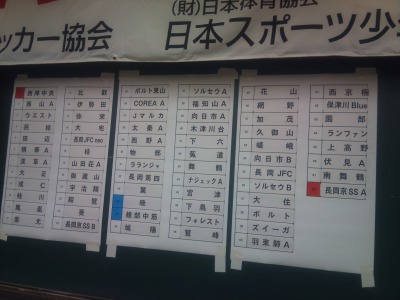 (財)日本体育協会
ッカー協会
日本スポーツ少
西陣中央
西山A
ウエスト
大正
桂川
北野
伊勢田
弥栄
大宅
長岡JFC neo
桂
山田荘A
御室
宇治翔
長岡京SS B
ボルト東山
COREA A
Jマルカ
太秦A
西野A
物部
ララランジャ
長岡第四
翼
綾部中筋
城陽
ソルセウA
福知山A
向日市A
木津川台
下六
菟道
舞鶴
ナジェックA
宮津
下鳥羽
フォレスト
鷲峰
花山
網野
加茂
久御山
嵯峨
向日市B
長岡JFC
ソルセウB
大住
ボルト
ズイーガ
羽束師A
西京極
保津川Blue
園部
ランファン
上高野
伏見A
南舞鶴
長岡京SS A